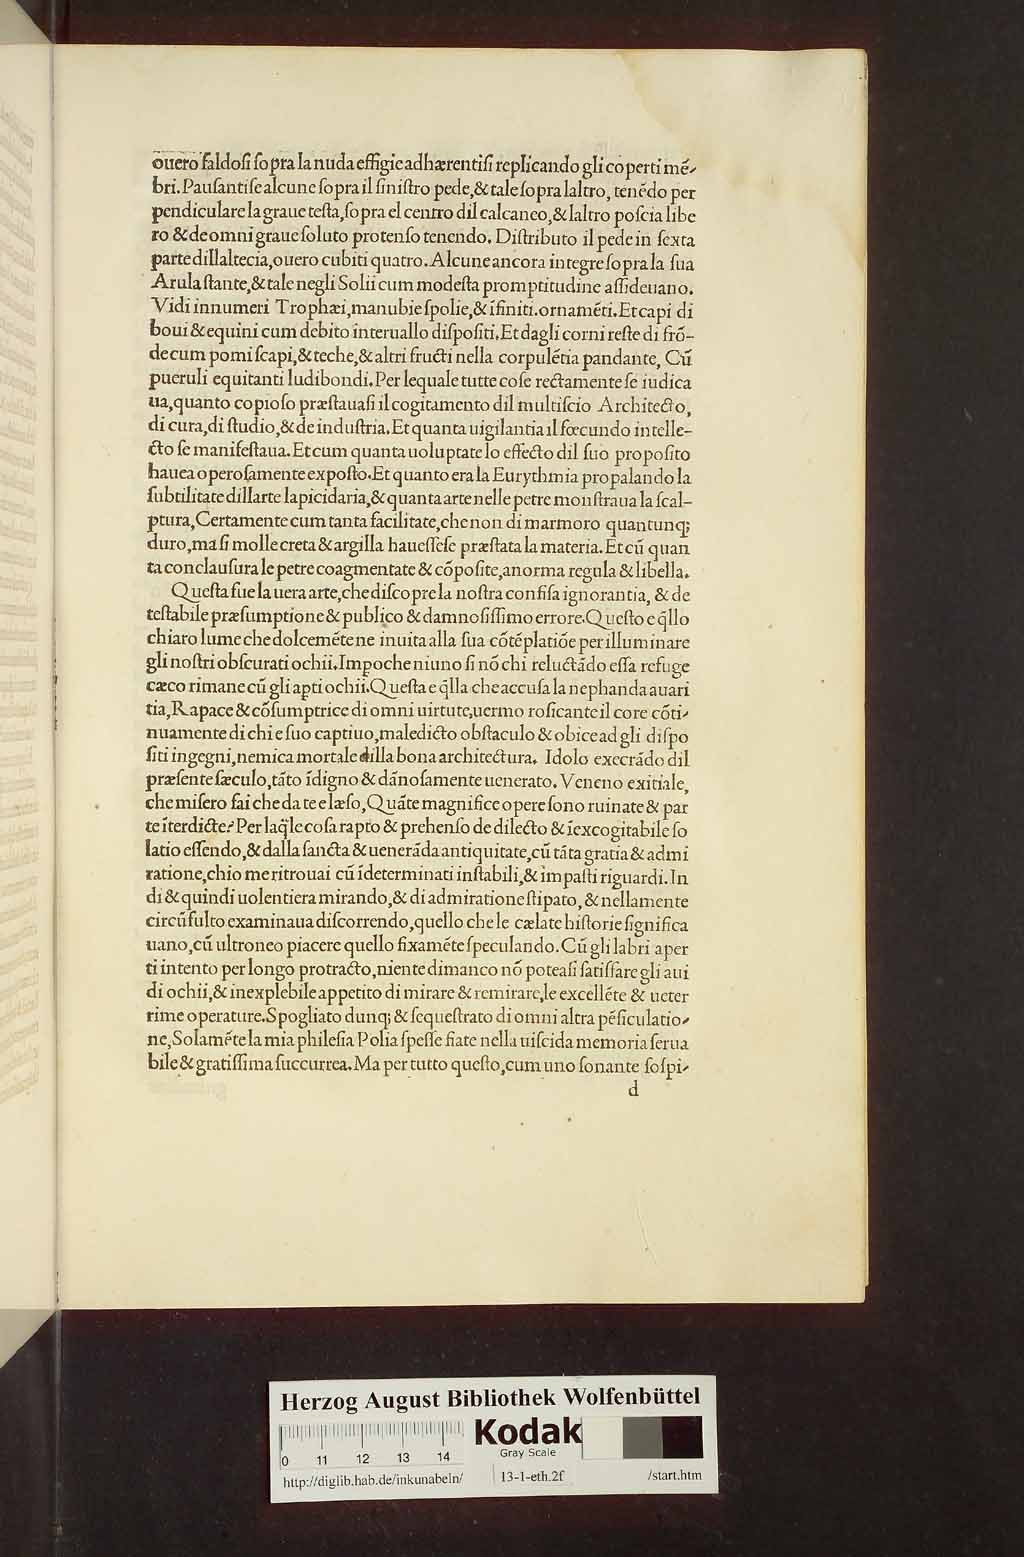 ouero faldoſi ſopra la nuda effigie adhærentiſi replicando gli coperti mẽ-
bri. Pauſantiſe alcune ſopra il ſiniſtro pede, & tale ſopra laltro, tenẽdo per
pendiculare la graue teſta, ſopra el centro dil calcaneo, & laltro poſcia libe
ro & de omni graue ſoluto protenſo tenendo. Diſtributo il pede in ſexta
parte dillaltecia, ouero cubiti quatro. Alcune ancora integre ſopra la ſua
Arula ſtante, & tale negli Solii cum modeſta promptitudine aſſideuano.
Vidi innumeri Trophæi, manubie ſpolie, & ĩfiniti. ornamẽti. Et capi di
boui & equini cum debito interuallo diſpoſiti, Et dagli corni reſte di frõ-
de cum pomi ſcapi, & teche, & altri fructi nella corpulẽtia pandante, Cũ
pueruli equitanti ludibondi. Per lequale tutte coſe rectamente ſe iudica
ua, quanto copioſo præſtauaſi il cogitamento dil multiſcio Architecto,
di cura, di ſtudio, & de induſtria. Et quanta uigilantia il fœcundo intelle-
cto ſe manifeſtaua. Et cum quanta uoluptate lo effecto dil ſuo propoſito
hauea operoſamente expoſto. Et quanto era la Eurythmia propalando la
ſubtilitate dillarte lapicidaria, & quanta arte nelle petre monſtraua la ſcal-
ptura, Certamente cum tanta facilitate, che non di marmoro quantunq;
duro, ma ſi molle creta & argilla haueſſeſe præſtata la materia. Et cũ quan
ta conclauſura le petre coagmentate & cõpoſite, a norma regula & libella.
Queſta fue la uera arte, che diſcopre la noſtra confiſa ignorantia, & de
teſtabile præſumptione & publico & damnoſiſſimo errore. Queſto e q̃llo
chiaro lume che dolcemẽte ne inuita alla ſua cõtẽplatiõe per illuminare
gli noſtri obſcurati ochii. Impoche niuno ſi nõ chi reluctãdo eſſa refuge
cæco rimane cũ gli apti ochii. Queſta e q̃lla che accuſa la nephanda auari
tia, Rapace & cõſumptrice di omni uirtute, uermo roſicante il core cõti-
nuamente di chi e ſuo captiuo, maledicto obſtaculo & obice ad gli diſpo
ſiti ingegni, nemica mortale dilla bona architectura. Idolo execrãdo dil
præſente ſæculo, tãto ĩdigno & dãnoſamente uenerato. Veneno exitiale,
che miſero fai che da te e læſo, Quãte magnifice opere ſono ruinate & par
te ĩterdicte? Per laq̃le coſa rapto & prehenſo de dilecto & ĩexcogitabile ſo
latio eſſendo, & dalla ſancta & uenerãda antiquitate, cũ tãta gratia & admi
ratione, chio me ritrouai cũ ĩdeterminati inſtabili, & impaſti riguardi. In
di & quindi uolentiera mirando, & di admiratione ſtipato, & nella mente
circũfulto examinaua diſcorrendo, quello che le cælate hiſtorie ſignifica
uano, cũ ultroneo piacere quello fixamẽte ſpeculando. Cũ gli labri aper
ti intento per longo protracto, niente dimanco nõ poteaſi ſatiſfare gli aui
di ochii, & inexplebile appetito di mirare & remirare, le excellẽte & ueter
rime operature. Spogliato dunq; & ſequeſtrato di omni altra pẽſiculatio-
ne, Solamẽte la mia phileſia Polia ſpeſſe fiate nella uiſcida memoria ſerua
bile & gratiſſima ſuccurrea. Ma per tutto queſto, cum uno ſonante ſoſpi-
d
Herzog August Bibliothek Wolfenbüttel
Kodak
Gray Scale
0 11 12 13 14
http://diglib.hab.de/inkunabeln/
13-1-eth.2f
/start.htm